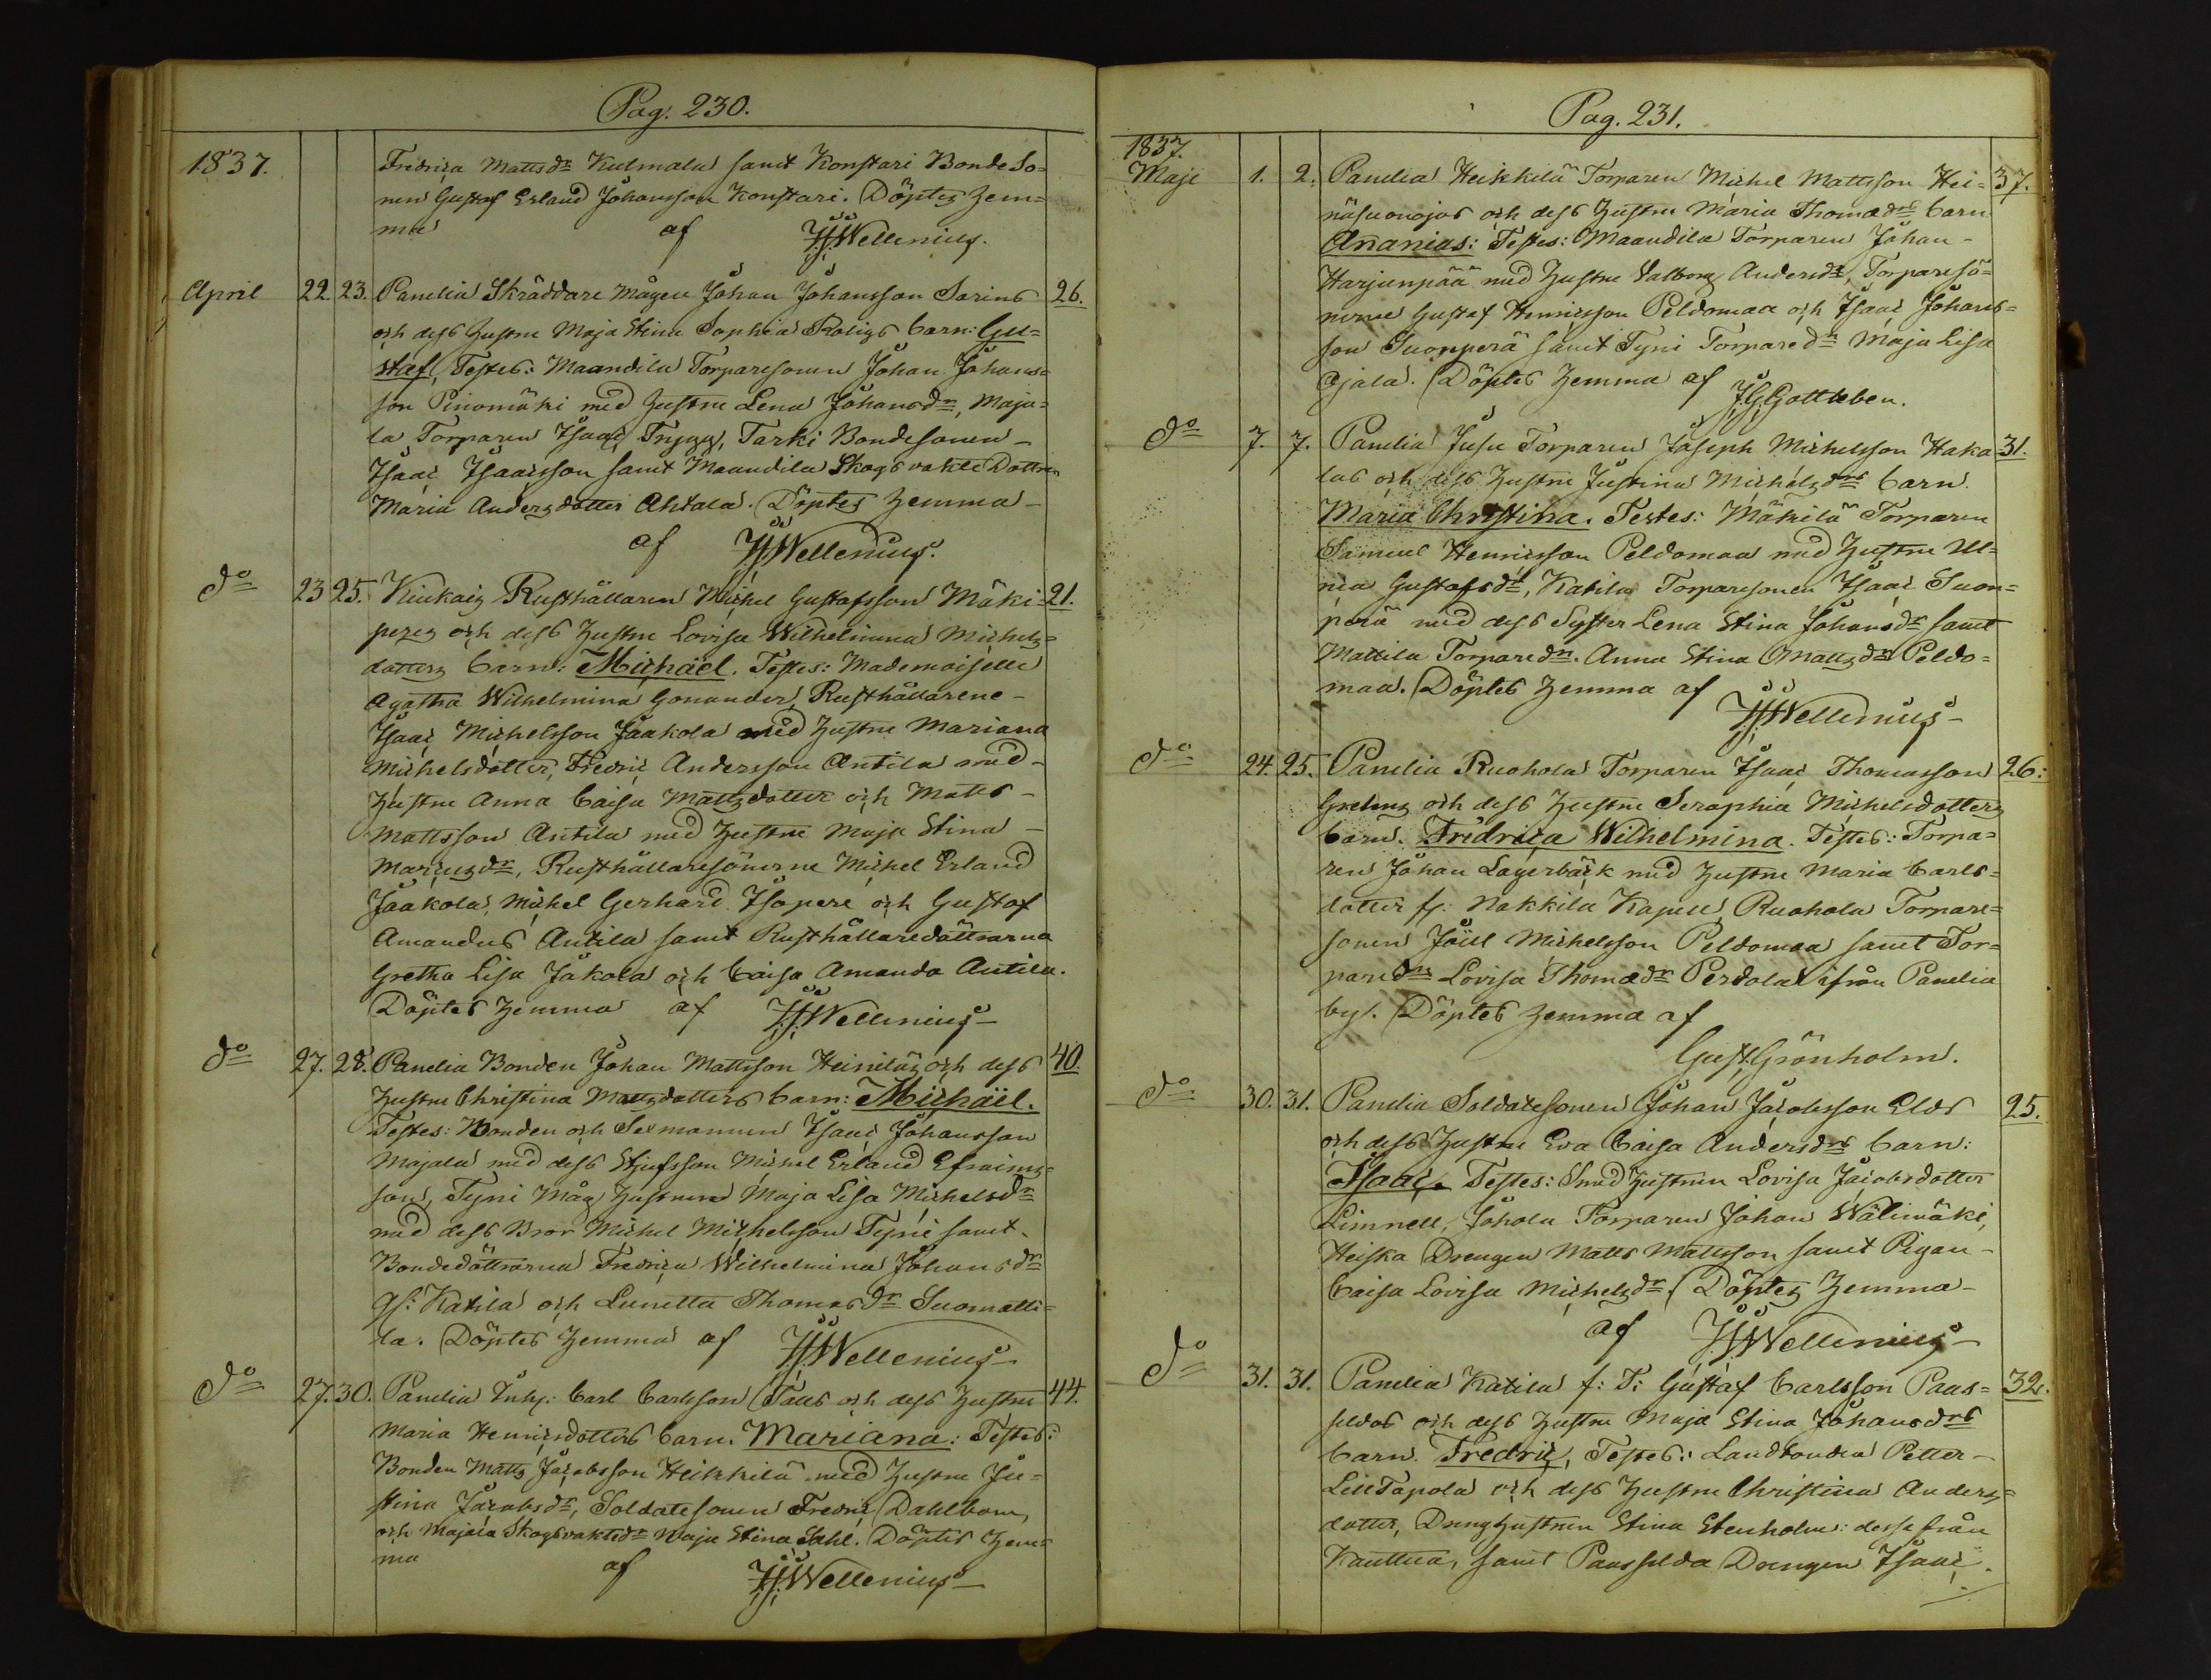 Pag. 230.
1837. Fredrica Mattsdr Kulmala samt Konstari Bonde So=
nen Gustaf Erland Johansson Konstari. Döptes hem=
ma af H.J. Wellenius.
April 22. 23. Panelia Skräddare Mågen Johan Johansson Sarins 26.
och dess hustru Maja Stina Sophia Roligs barn: Gu=
staf, Testes: Maandila Torparesonen Johan Johans=
son Pinomäki med hustru Lena Johansdr, Maja=
la Torparen Isaac Trygg, Tarki Bondesonen
Isaac Isaacsson samt Maandila Skogsvakte Dottren
Maria Andersdotter Ahtala. Döptes hemma
af H.J. Wellenius.
do 23 25. Kiukais Rusthållaren Michel Gustafsson Mäki= 21.
peres och dess hustru Lovisa Wilhelmina Michels=
dotters barn: Michaël. Testes: Mademoiselle
Agatha Wilhelmina Gonander, Rusthållarene
Isaac Michelsson Jaakola med hustru Mariana
Michelsdotter, Fredric Andersson Antila med
hustru Anna Caisa Mattsdotter och Matts
Mattsson Antila med hustru Maja Stina
Marcusdr, Rusthållaresönerne Michel Erland
Jaakola, Michel Gerhard Isopere och Gustaf
Amandus Antila samt Rusthållaredöttrarna
Gretha Lisa Jakola och Caisa Amanda Antila.
Döptes hemma af H.J. Wellenius
do 27. 28. Panelia Bonden Johan Mattsson Heinilas och dess 40.
hustru Christina Mattsdotters barn: Michaël.
Testes: Bonden och Sexmannen Isaac Johansson
Majala med dess Stjufsson Michel Erland Efraims=
son, Tyni Måg hustrun Maja Lisa Michelsdr
med dess Bror Michel Michelsson Tyni samt
Bondedöttrarna Fredrica Wilhelmina Johansdr
Katila och Lunetta Thomasdr Suomatti=
la. Döptes hemma af H.J. Wellenius
do 27. 30. Panelia Inhs: Carl Carlsson och dess hustru 44.
Maria Henricsdotters barn. Mariana: Testes:
Bonden Matts Jacobsson Heikkilä med hustru Ju=
stina Jacobsdr, Soldatesonen Fredric Dahlbom,
och Majala Skogsvaktedr Maja Stina Sahl. Döptes hem=
ma af H.J. Wellenius
Pag. 231.
1837.
Maji 1. 2. Panelia Heikkilä Torparen Michel Mattsson Hei= 37.
näsuonojas och dess hustru Maria Thomædrs barn
Ananias: Testes: Maandila Torparen Johan
Harjunpää med hustru Valborg Andersdr, Torparesö=
nerne Gustaf Henricsson Peldomaa och Isaac Johans=
son Suonperä samt Tyni Torparedr Maja Lisa
Ojala. Döptes hemma af J.G. Gottleben.
do 7. 7. Panelia Jusu Torparen Joseph Michelsson Haka 31.
las och dess hustru Justina Michelsdrs barn
Maria Christina. Testes: Mäkilä Torparen
Samuel Henricsson Peldomaa med hustru Ul=
rica Gustafsdr, Katila Torparesonen Isaac Suon=
perä med dess Syster Lena Stina Johansdr samt
Mattila Torparedr. Anna Stina Mattsdr Peldo=
maa. Döptes hemma af H.J. Wellenius
do 24. 25. Panelia Ruohola Torparen Isaac Thomasson 26:
och dess hustru Seraphia Michelsdotters
barn. Fridrica Wilhelmina. Testes: Torpa=
ren Johan Lagerbäck med hustru Maria Carls=
dotter fr: Nakkila Kapell, Ruohola Torpare=
sonen Joël Michelsson Peldomaa samt Tor=
paredr Lovisa Thomædr Perdola ifrån Panelia
by. Döptes hemma af
Gust. Grönholm.
do 30. 31. Panelia Soldatesonen Johan Jacobsson Elds 25.
och dess hustru Eva Caisa Andersdrs barn:
Isaac. Testes: Smed hustrun Lovisa Jacobsdotter
Limnell, Johola Torparen Johan Wälimäki,
Heiska Drengen Matts Mattsson samt Pigan
Caisa Lovisa Michelsdr. Döptes hemma
af H.J. Wellenius
do 31. 31. Panelia Katila f: T: Gustaf Carlsson Paas= 32.
seldas och dess hustru Maja Stina Johansdrs
barn. Fredric, Testes: Landbonden Petter
Lill Tapola och dess hustru Christina Anders=
dotter, Dreng hustrun Stina Stenholm: desse från
Kauttua, samt Paasselda Drengen Isaac.